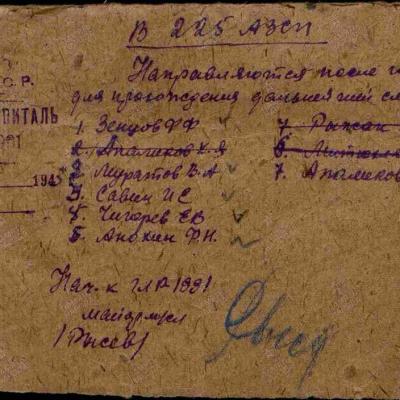 В 225 АЗСП
Направляются после
для прохождения дальнейшей
С.Р.
ГОСПИТАЛЬ
194
1. Зенцов Ф Ф
2. Апаликов Х.Я
2. Муратов В.А
3. Савин И С
4. Чигарев Е В
5. Анохин Ф.Н.
7. Рыжан
6. Митюко
7. Апаликов
Нач-к ГЛР 1991
майор м/сл
(Рысев)